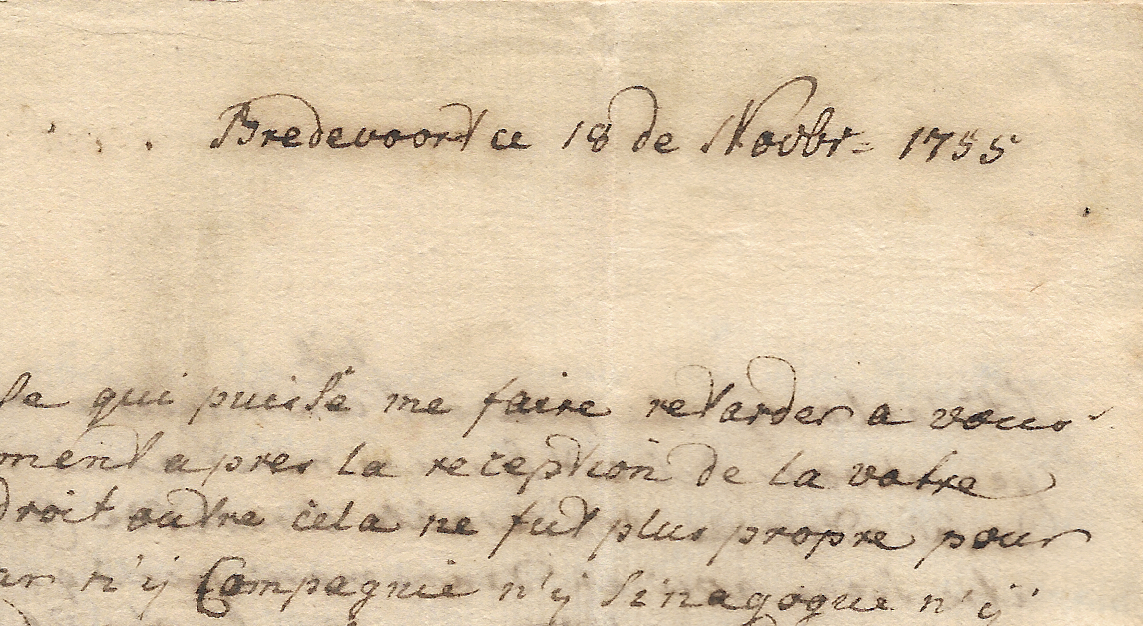 Bredevoort ce 18 de Novbr= 1755
se qui puisse me faire retarder a vous
ment apres la reception de la votre
droit outre cela ne fut plus propre pour
n'ÿ Compagnie n'ÿ Sinagogue n'ÿ